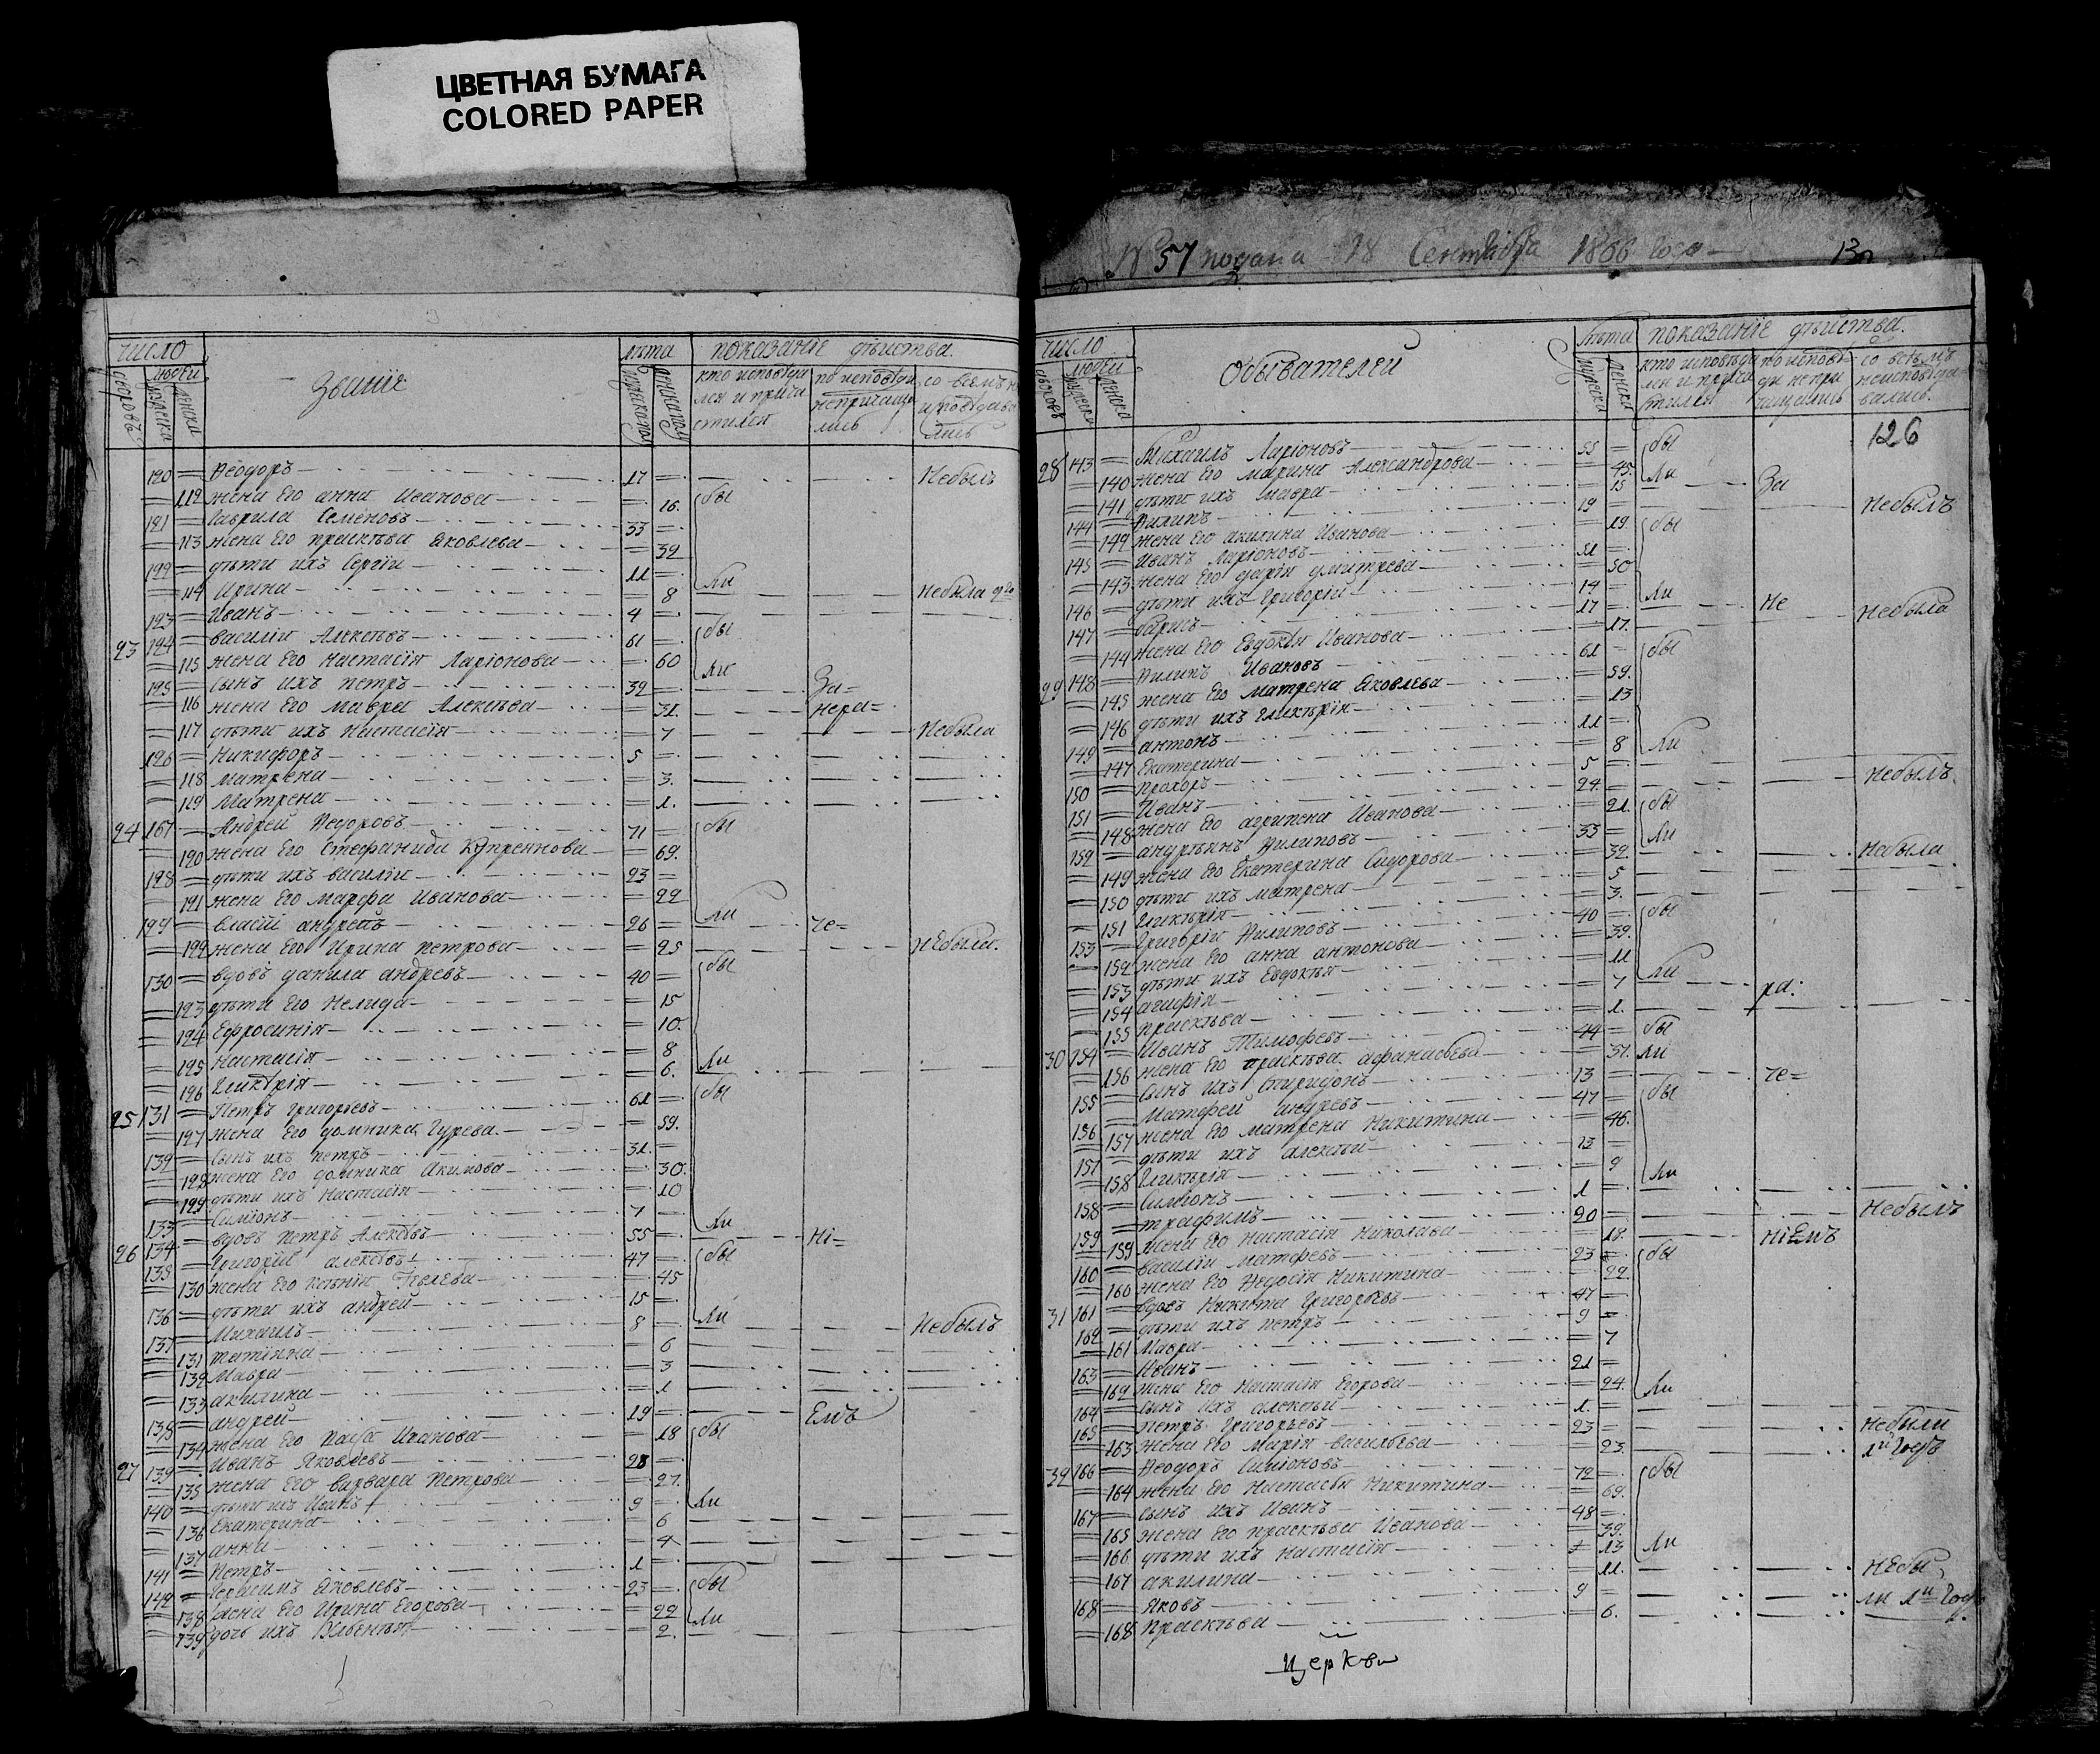 ЦВЕТНАЯ БУМАГА
COLORED PAPER
№ 57 подана 18 Сентября 1866 года
число
людей
Званіе
лѣта
показаніе дѣйства.
120 Ѳеодоръ 17 Небылъ
112 жена Его анна Иванова 16. бы
121 Гаврила Семеновъ 33
113 жена Его праскѣва Яковлева 32
122 дѣти ихъ Сергіи 11
114 Ирина 8 ли Небыла
123 Иванъ 4
23 124 василіи Алексѣвъ 61 бы
115 жена Его Настасія Ларіонова 60 ли
125 сынъ ихъ петръ 32 За=
116 жена Его мавра Алексѣва 31. нера=
117 дѣти ихъ Настасія 7 Небыла
126 Никифоръ 5
118 матрена 3.
119 Матрена 1.
24 Андрей Ѳедоровъ 71 бы
120 жена Его Стефанида Купреянова 69.
128 дѣти ихъ василіи 23
121 жена Его марфа Иванова 22 ли
129 власіи андревъ 26 че=
122 жена Его Ирина петрова 25 нЕбыли.
130 вдовъ данила андревъ 40 бы
123 дѣти Его 15
124 Ефросинія 10.
125 Настасія 8 ли
126 Гликѣрія 6.
25 131 Петръ Григорьевъ 61 бы
127 жена Его домника Гурева 59.
132 сынъ ихъ петръ 31.
128 жена Его домника Акимова 30.
129 дѣти ихъ Настасія 10
133 Симіонъ 7 ли
26 134 вдовъ Петръ Алексѣвъ 55 Ні=
135 Григоріи алексѣвъ 47 бы
130 жена Его 45
136 дѣти ихъ андрей 15 ли
137 Михаилъ 8 Небылъ
131 татіяна 6
132 Мавра 3
133 акилина 1
138 андрей 19 Емъ
134 жена Его Иванова 18 бы
27 139 Иванъ Яковлевъ 28
135 жена Его варвара Петрова 27.
140 дѣти ихъ Иванъ 9 ли
136 Екатерина 6
137 анна 4
141 Петръ 1
142 Герасимъ Яковлевъ 23 бы
138 жена Его Ирина Егорова 22 ли
139 дочь ихъ 2.
число
людей
Обывателей
лѣта
показаніе дѣйства.
126
28 143 Михаилъ Ларіоновъ 55 бы
140 жена Его марина Александрова 45. ли
141 дѣти ихъ мавра 15 За
144 Филипъ 19 Небылъ
142 жена Его акилина Иванова 19 бы
145 Иванъ Ларіоновъ 51
143 жена Его дарія дмитрева 50
146 дѣти ихъ Григорій 14 ли
147 барисъ 17 Не Небыла
144 жена Его Евдокѣя Иванова 17.
29 148 Филипъ Ивановъ 61 бы
145 жена Его матрена Яковлева 59.
146 дѣти ихъ Гликѣрія 13
149 антонъ 11
147 Екатерина 8 ли
150 прохоръ 5
151 Иванъ 24. Небылъ
148 жена Его агрипена Иванова 21. бы
152 андреянъ Филиповъ 33 ли
149 жена Его Екатерина Сидорова 32 Небыла
150 дѣти ихъ матрена 5
151 Гликѣрія 3.
153 Григоріи Филиповъ 40 бы
152 жена Его анна антонова 39.
153 дѣти ихъ Евдокѣя 11 ли
154 агафія 7 ра:
155 праскѣва 1.
30 154 Иванъ Тимофевъ 44 бы
156 жена Его праскѣва афанасьева 37. ли
155 сынъ ихъ Спиридонъ 13 че=
156 Матфей андревъ 47 бы
157 жена Его матрена Никитина 46.
157 дѣти ихъ алексѣй 13
158 Гликѣрія 9 ли
158 Симіонъ 1
159 трафимъ 20 Небылъ
159 жена Его настасія Николава 18. ніЕмъ
160 василіи матфевъ 23 бы
160 жена Его Ѳедосія Никитина 22
31 161 вдовъ Никита Григорьевъ 47
162 дѣти ихъ петръ 9
161 Мавра 7
163 Иванъ 21
162 жена Его Настасія Егорова 24. ли
164 сынъ ихъ алексѣй 1.
165 Петръ Григорьевъ 23 небыли
163 жена Его Марія васильева 23. 1й годъ
32 166 Ѳеодоръ Симіоновъ 72 бы
164 жена Его Настасья Никитина 69.
167 сынъ ихъ Иванъ 48
165 жена Его праскѣва Иванова 39.
166 дѣти ихъ настасія 13 ли
167 акилина 11. нЕбы
168 Яковъ 9 ли 1й годъ
168 Праскѣва 6.
Церкви